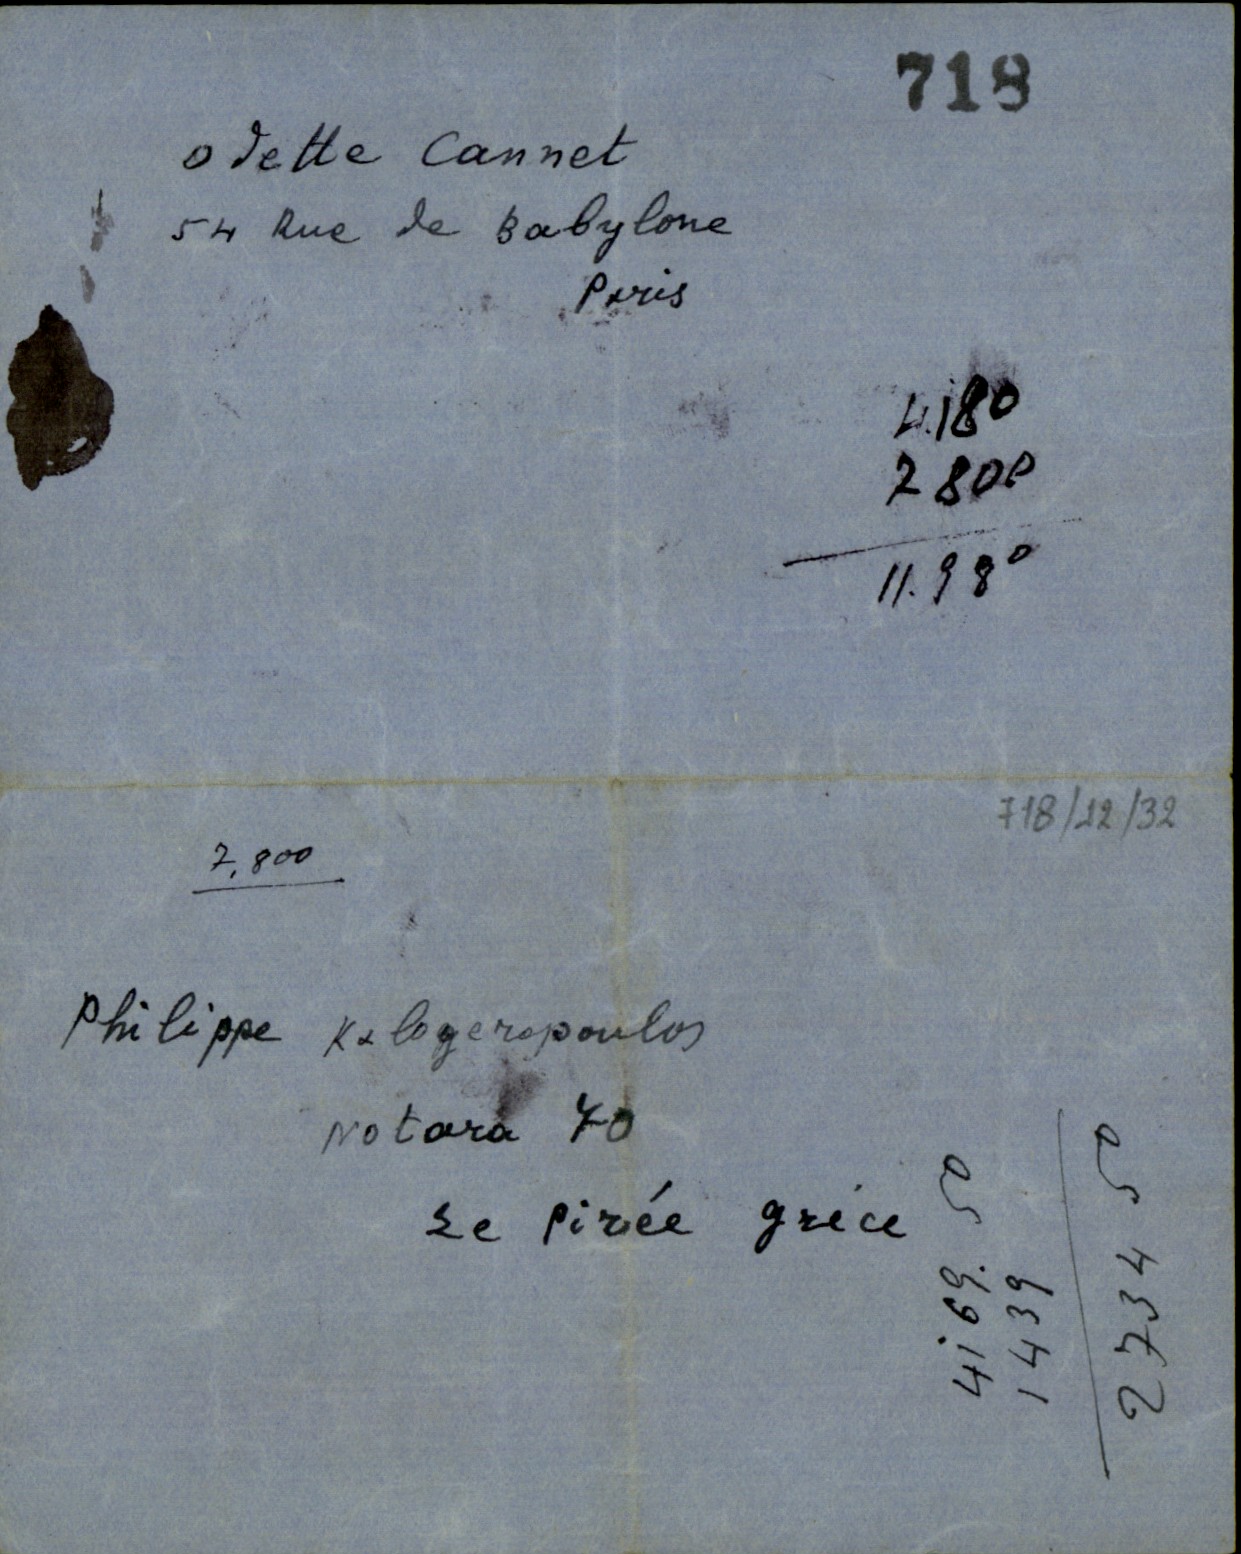 718
odette Cannet
54 Rue de Babylone
Paris
4.180
7 800
11.980
718/12/32
7.800
Philippe Kalogeropoulos
Notara 70
Le Pirée gréce
4169. 50
1439
2734 50